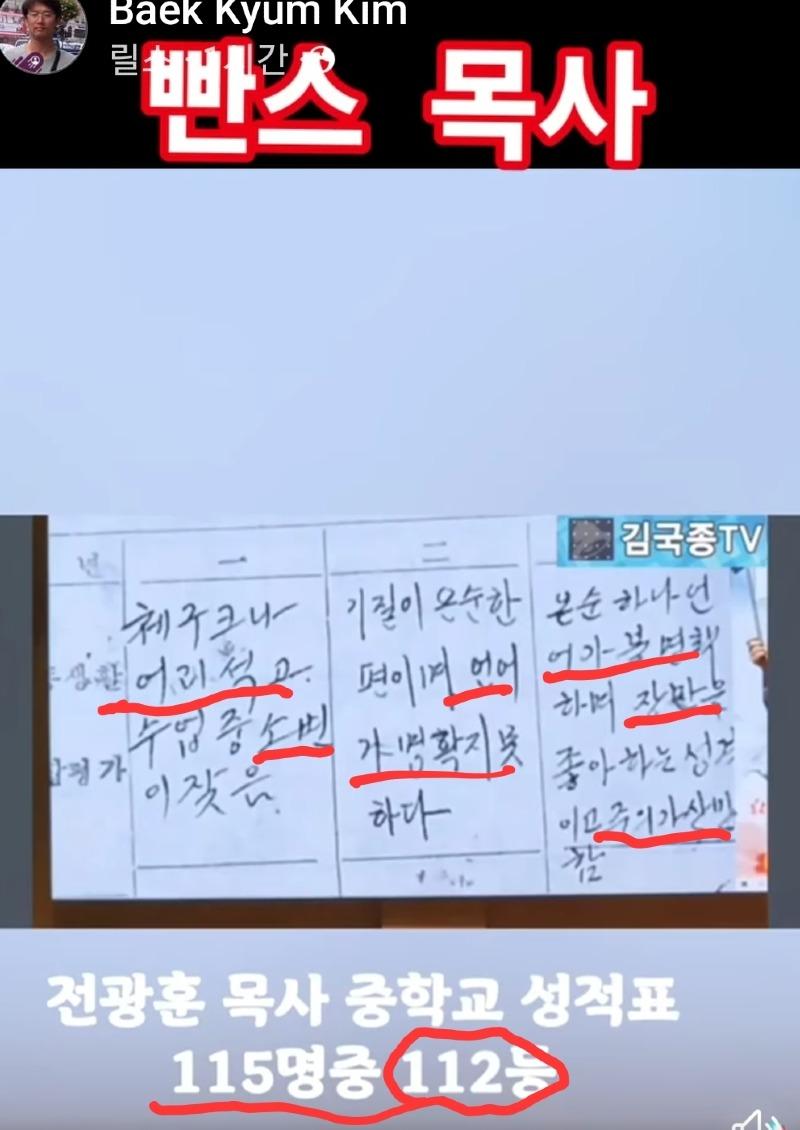 Baek Kyum Kim
릴스 · 1시간
빤스 목사
김국종TV
년
一
二
체구크나
어리석고
수업중 소변
이 잦음
합평가
기질이 온순한
편이며 언어
가 명확지 못
하다
온순하나 언
어가 불면책
하며 장반을
좋아하는 성격
이고 주의가 산만
함
전광훈 목사 중학교 성적표
115명중 112등